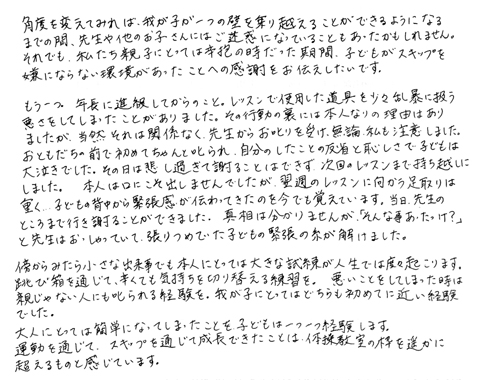 角度を変えてみれば、我が子が一つの壁を乗り越えることができるようになる
までの間、先生や他のお子さんにはご迷惑になっていることもあったかもしれません。
それでも、私たち親子にとっては辛抱の時だった期間、子どもがスキップを
嫌にならない環境があったことへの感謝をお伝えしたいです。
もう一つ 年長に進級してからのこと。レッスンで使用した道具を少々乱暴に扱う
悪さをしてしまったことがありました。その行動の裏には本人なりの理由はあり
ましたが、当然それは関係なく、先生からお叱りを受け、無論、私も注意しました。
おともだちの前で初めてちゃんと叱られ、自分のしたことの反省と恥じしさで子どもは
大泣きでした。その日は悲し過ぎて謝ることはできず、次回のレッスンまで持ち越しに
しました。 本人は口にこそ出しませんでしたが、翌週のレッスンに向かう足取りは
重く…子どもの背中から緊張感が伝わってきたのを今でも覚えています。当日、先生の
ところまで行き謝ることができました。真相は分かりませんが、「そんな事あったっけ?」
と先生はおっしゃっていて、張りつめていた子どもの緊張の糸が解けました。
傍からみたら小さな出来事でも本人にとっては大きな試練が人生では度々起こります。
跳び箱を通じて、辛くても気持ちを切り替える練習を。 悪いことをしてしまった時は
親じゃない人にも叱られる経験を。我が子にとってはどちらも初めてに近い経験
でした。
大人にとっては簡単になってしまったことを子どもは一つ一つ経験します。
運動を通じて、スキップを通じて成長できたことは、体操教室の枠を遥かに
超えるものと感じています。